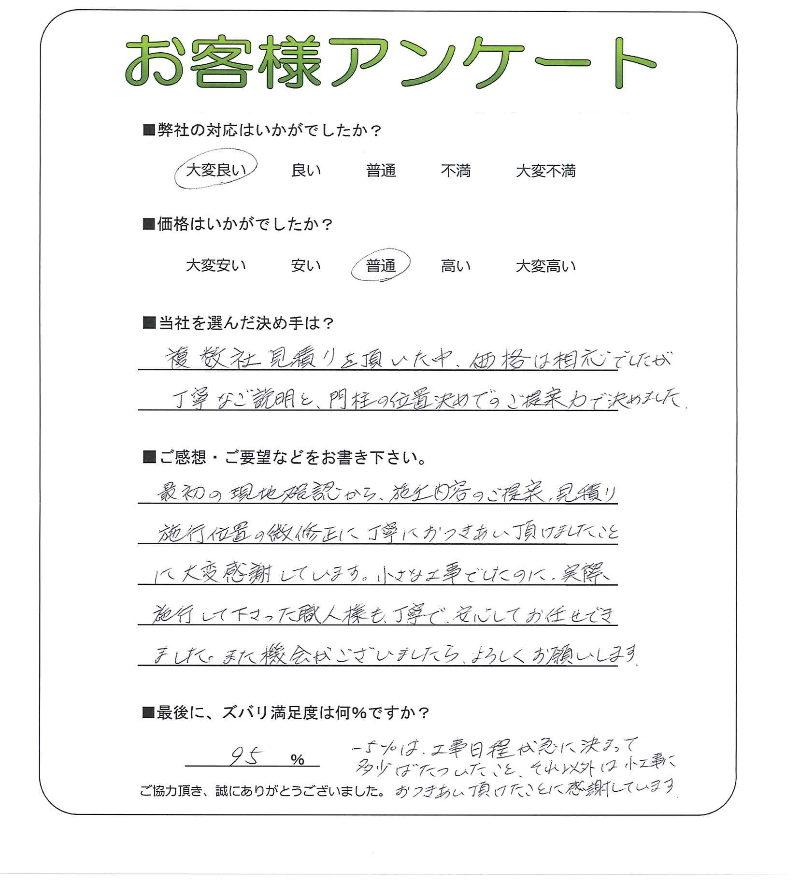 お客様アンケート
■弊社の対応はいかがでしたか？
大変良い 良い 普通 不満 大変不満
■価格はいかがでしたか？
大変安い 安い 普通 高い 大変高い
■当社を選んだ決め手は？
複数社見積りを頂いた中、価格は相応でしたが
丁寧なご説明と、門柱の位置決めでのご提案力で決めました。
■ご感想・ご要望などをお書き下さい。
最初の現地確認から、施工内容のご提案、見積り
施行位置の微修正に丁寧におつきあい頂けましたこと
に大変感謝しています。小さな工事でしたのに、実際、
施行して下さった職人様も、丁寧で、安心してお任せでき
ました。また機会がございましたら、よろしくお願いします。
■最後に、ズバリ満足度は何%ですか？
95 %
-5%は、工事日程が急に決まって
多少ばたついたこと、それ以外は小工事に
おつきあい頂けたことに感謝しています。
ご協力頂き、誠にありがとうございました。